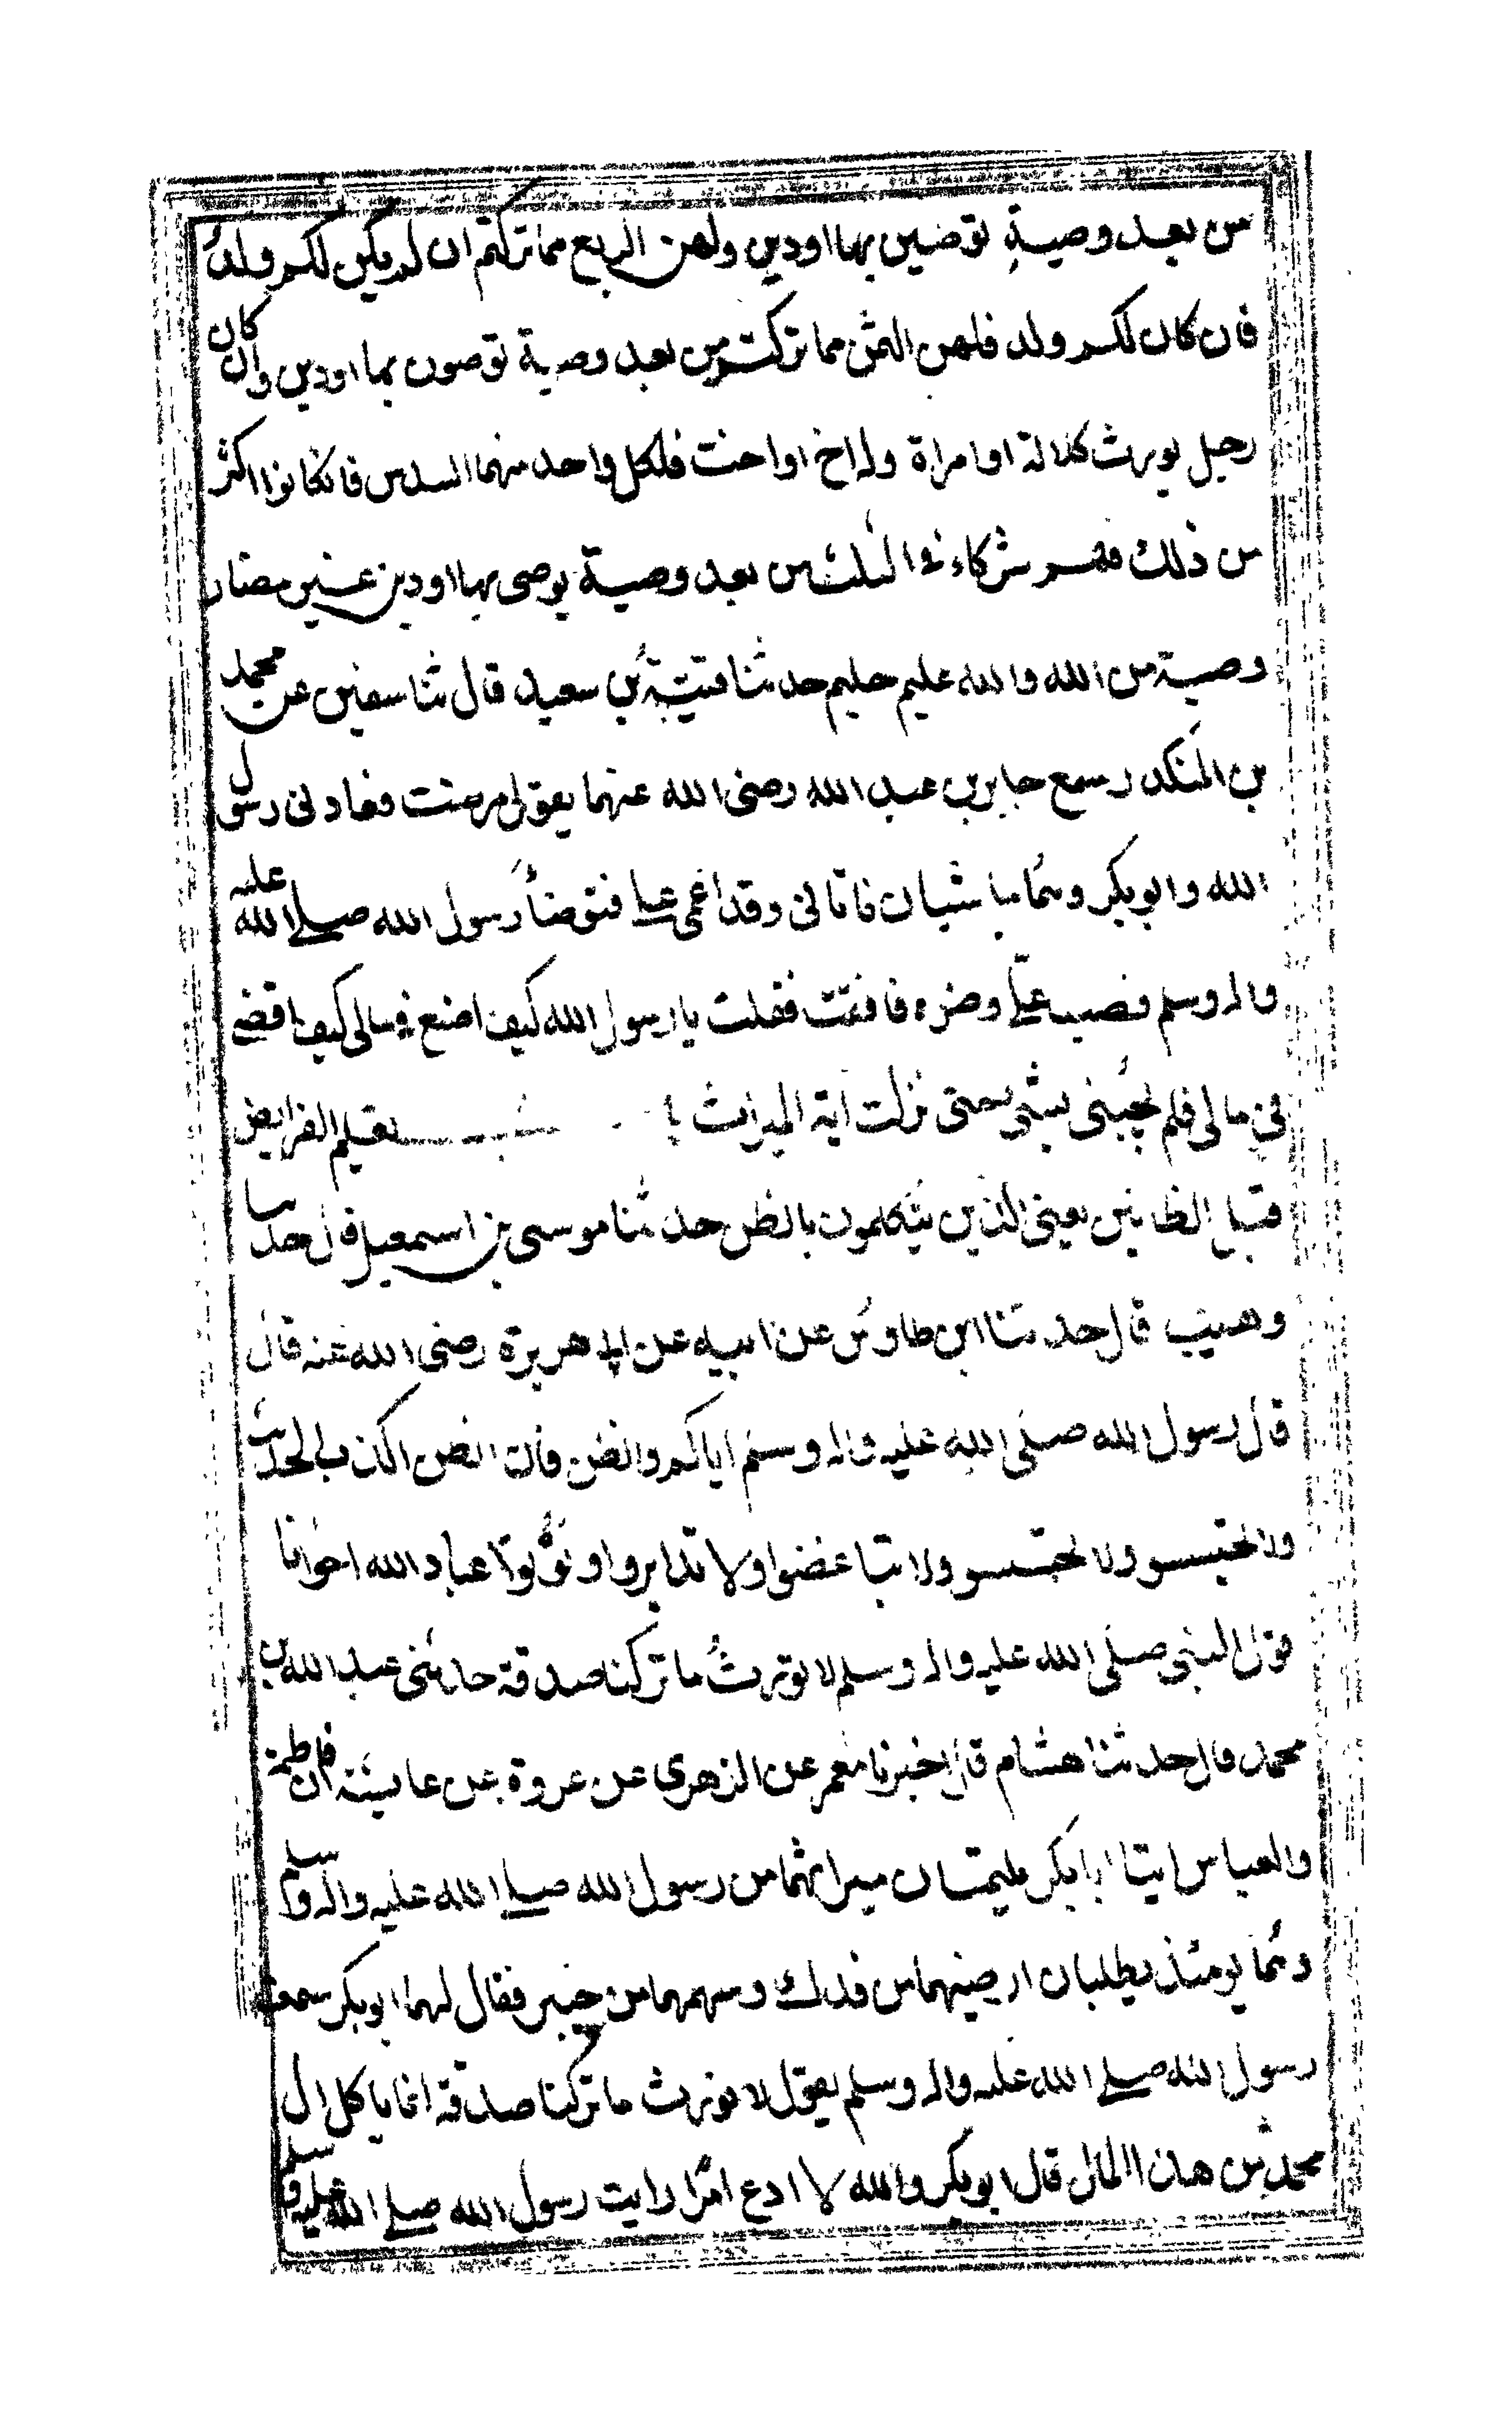 من بعد وصية توصين بها اودين ولهن الربع مما تركتم ان لم يكن لكم ولد
فان كان لكم ولد فلهن الثمن مما تركتم من بعد وصية توصون بها اودين وان كان
رجل يورث كلالة او امراة وله اخ او اخت فلكل واحد منهما السدس فانكانوا اكثر
من ذلك فهم شركاء في الثلث من بعد وصية يوصى بها اودين غير مضار
وصية من الله والله عليم حليم حدثنا قتيبة بن سعيد قال ثنا سفين عن محمد
بن المنكدر سمع جابر بن عبد الله رضى الله عنهما يقول مرضت فعادنى رسول
الله وابو بكر وهما ماشيان فاتانى وقد اغمى على فتوضأ رسول الله صلى الله عليه
واله وسلم فصب على وضوءه فافقت فقلت يا رسول الله كيف اصنع في مالى كيف اقضى
في مالى فلم يجبنى بشى حتى نزلت آية الميراث با تعليم الفرايض
قبل الظانين يعنى الذين يتكلمون بالظن حدثنا موسى بن اسمعيل قال حدثنا
وهيب قال حدثنا ابن طاوس عن ابيه عن ابى هريرة رضى الله عنه قال
قال رسول الله صلى الله عليه واله وسلم اياكم والظن فان الظن اكذب الحديث
ولا تحسسو ولا تجسسو ولا تباغضوا ولا تدابروا وكونوا عباد الله اخوانا
قول النبى صلى الله عليه واله وسلم لا نورث ما تركنا صدقة حدثنى عبد الله بن
محمد قال حدثنا هشام قال اخبرنا معمر عن الزهرى عن عروة عن عايشة ان فاطمة
والعباس اتيا ابا بكر يلتمسان ميراثهما من رسول الله صلى الله عليه واله وسلم
وهما يومئذ يطلبان ارضيهما من فدك وسهمهما من خيبر فقال لهما ابو بكر سمعت
رسول الله صلى الله عليه واله وسلم يقول لا نورث ما تركنا صدقة انما ياكل ال
محمد من هذا المال قال ابو بكر والله لا ادع امرا رايت رسول الله صلى الله عليه وسلم